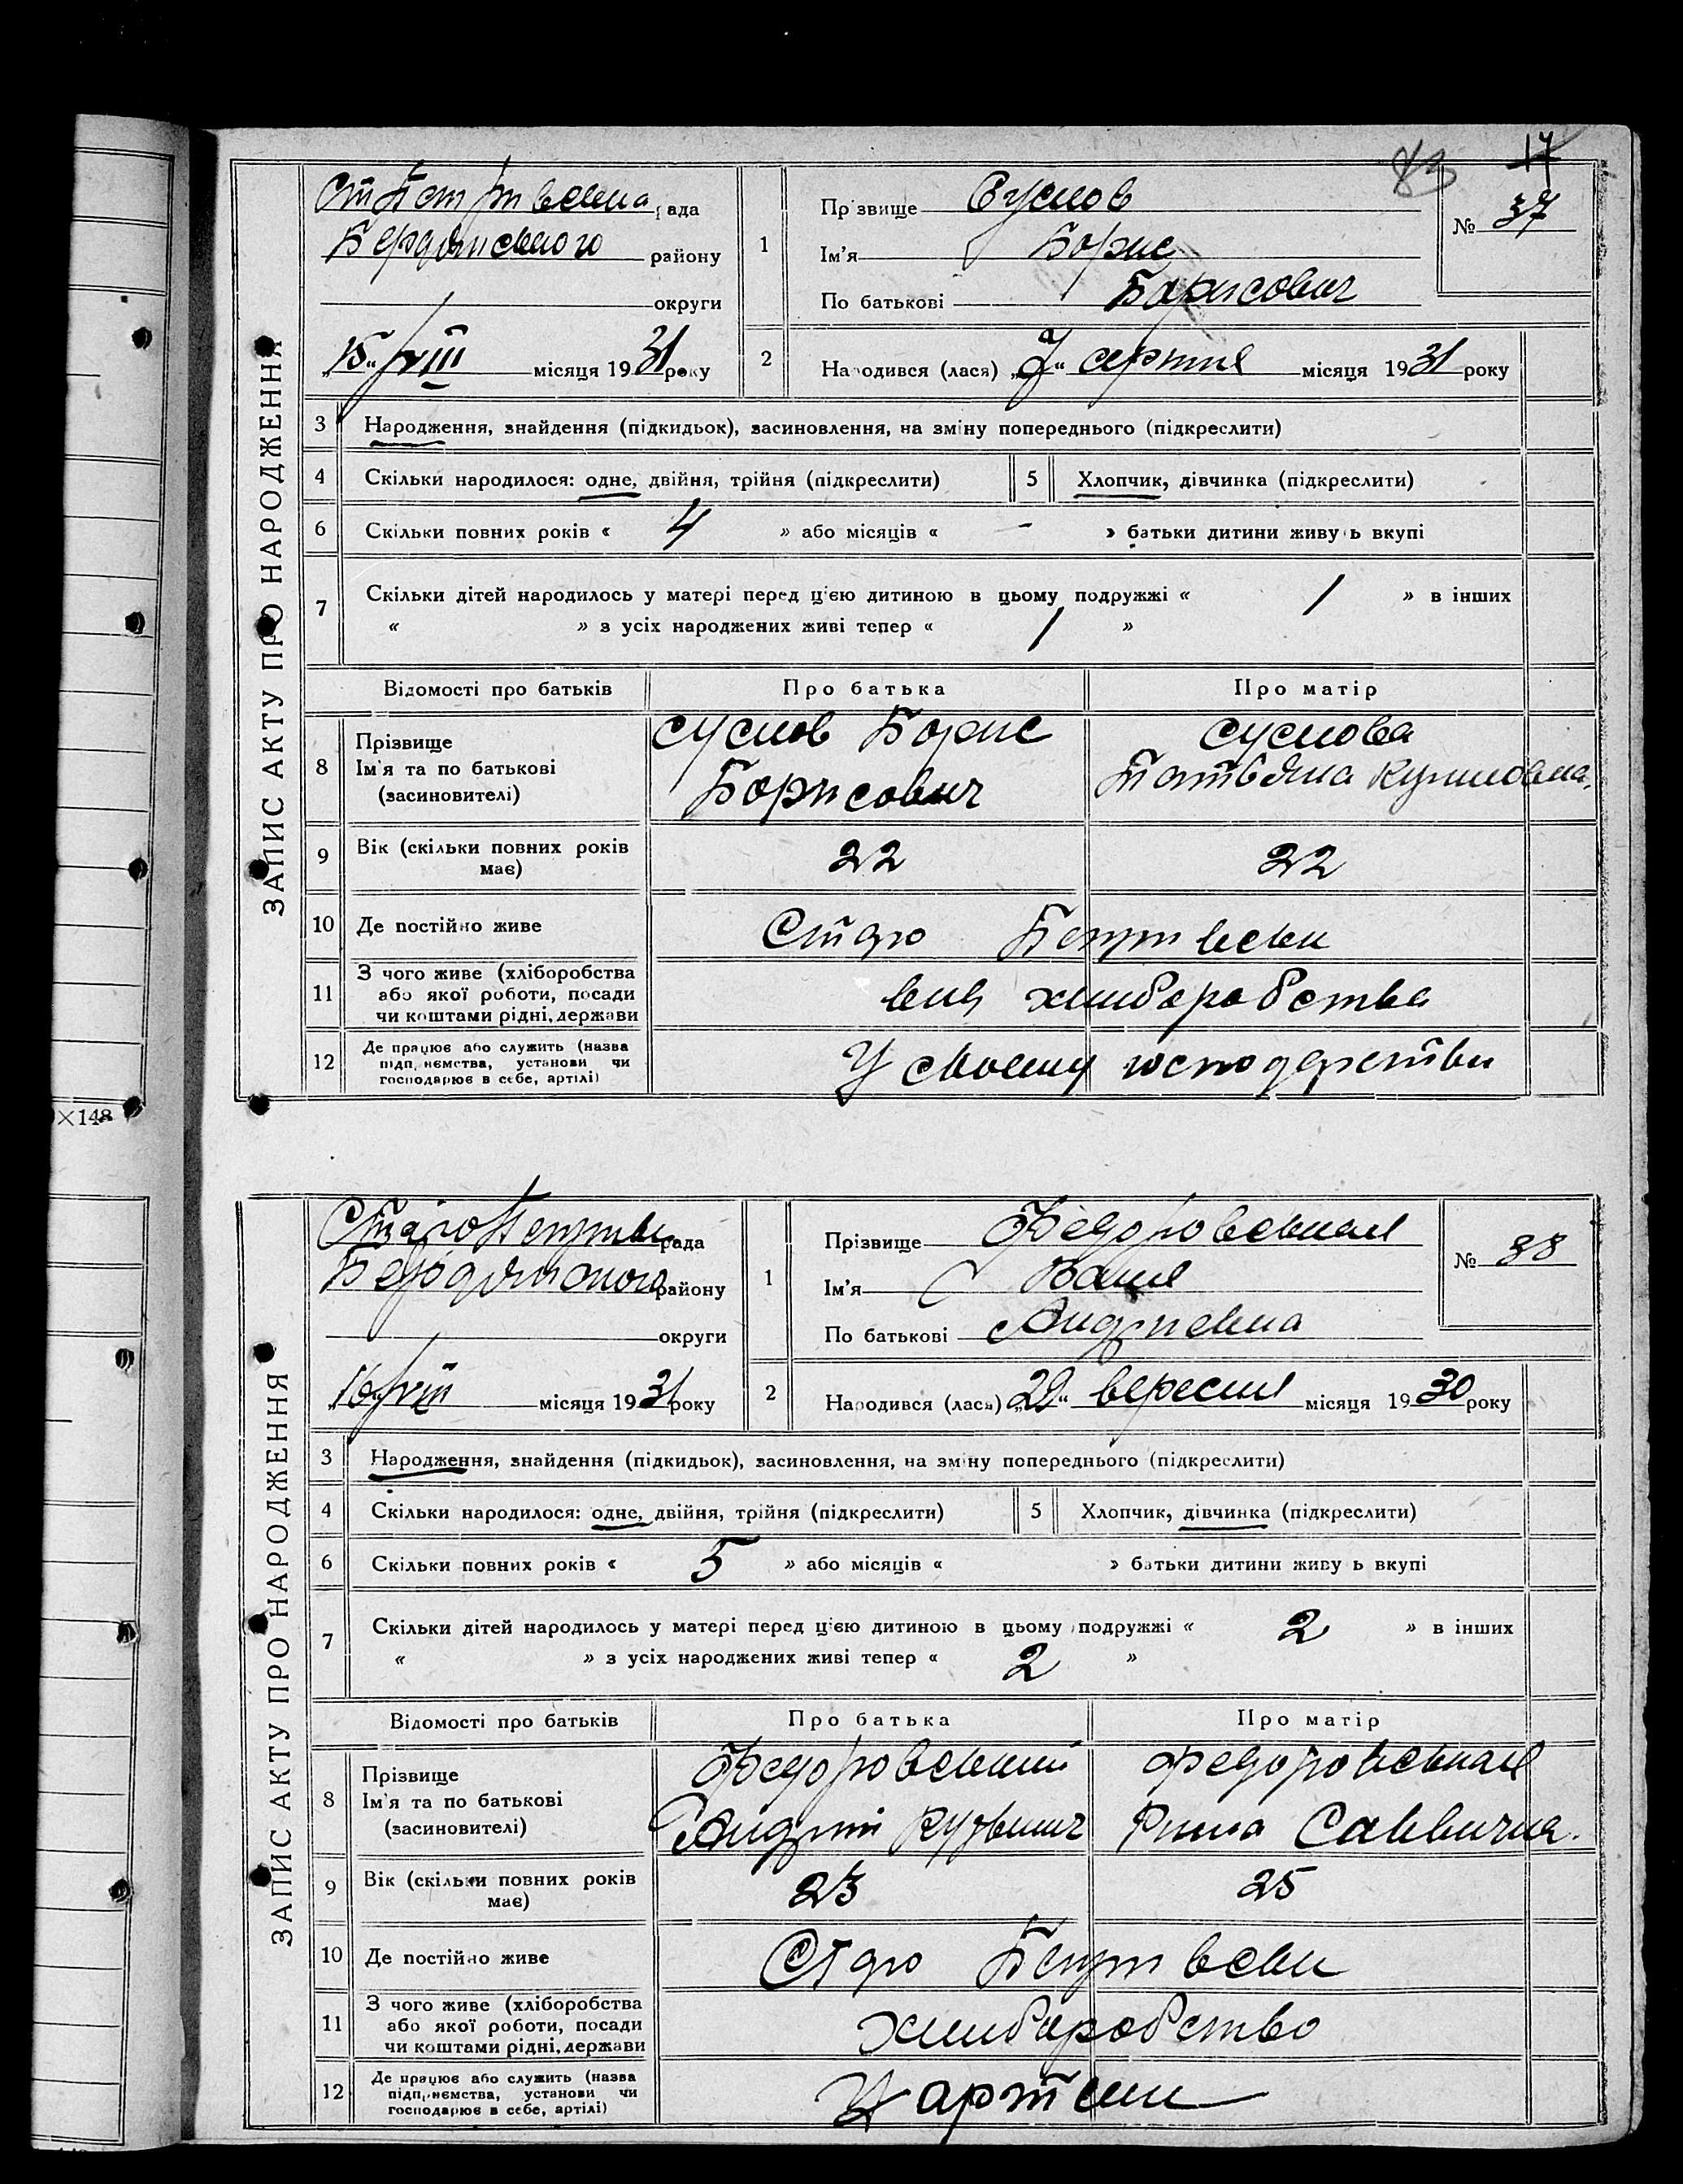 83 17
ЗАПИС АКТУ ПРО НАРОДЖЕННЯ
рада
Бердянського району
округи
"15" VIII місяця 1931 року
1 Прізвище Суслов
Ім'я Борис
По батькові Борисович
№ 37
2 Народився (лася) "7" серпня місяця 1931 року
3 Народження, знайдення (підкидьок), засиновлення, на зміну попереднього (підкреслити)
4 Скільки народилося: одне, двійня, трійня (підкреслити) 5 Хлопчик, дівчинка (підкреслити)
6 Скільки повних років « 4 » або місяців « – » батьки дитини живуть вкупі
7 Скільки дітей народилось у матері перед цією дитиною в цьому подружжі « 1 » в інших
« » з усіх народжених живі тепер « 1 »
Відомості про батьків Про батька Про матір
8 Прізвище
Ім'я та по батькові
(засиновителі)
Суслов Борис
Борисович
Суслова
Татьяна
9 Вік (скільки повних років
має) 22 22
10 Де постійно живе Старо Петрівськи
11 З чого живе (хліборобства
або якої роботи, посади
чи коштами рідні, держави
хлиборобства
12 Де працює або служить (назва
підприємства, установи чи
господарює в себе, артілі)
У своему господарстви
×148
ЗАПИС АКТУ ПРО НАРОДЖЕННЯ
рада
Бердянского району
округи
"16" VIII місяця 1931 року
1 Прізвище Федоровськая
Ім'я
По батькові Андріевна
№ 38
2 Народився (лася) "29" вересня місяця 1930 року
3 Народження, знайдення (підкидьок), засиновлення, на зміну попереднього (підкреслити)
4 Скільки народилося: одне, двійня, трійня (підкреслити) 5 Хлопчик, дівчинка (підкреслити)
6 Скільки повних років « 5 » або місяців « » батьки дитини живуть вкупі
7 Скільки дітей народилось у матері перед цією дитиною в цьому подружжі « 2 » в інших
« » з усіх народжених живі тепер « 2 »
Відомості про батьків Про батька Про матір
8 Прізвище
Ім'я та по батькові
(засиновителі)
Федоровський
Андрій Кузьмич
Федоровськая
Саввична.
9 Вік (скільки повних років
має) 23 25
10 Де постійно живе Старо Петрівськи
11 З чого живе (хліборобства
або якої роботи, посади
чи коштами рідні, держави
хлиборобство
12 Де працює або служить (назва
підприємства, установи чи
господарює в себе, артілі)
У артели